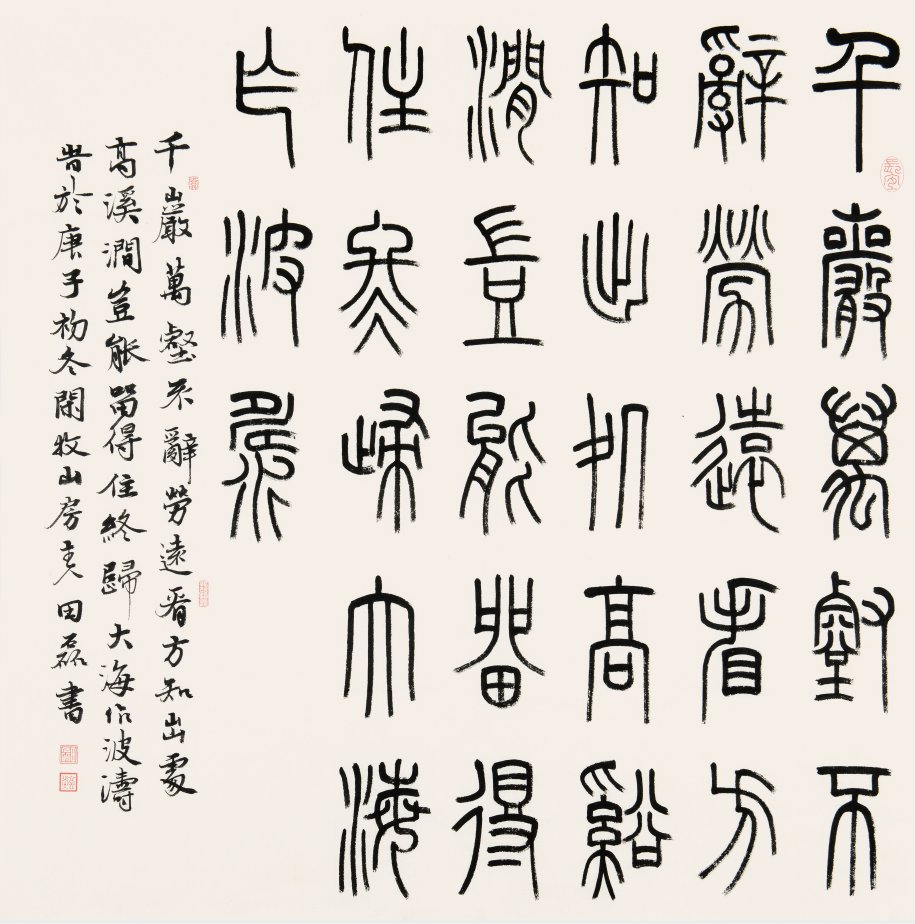 千巖萬壑不
辭勞遠看方
知出処高谿
澗豈能畱得
住終歸大海
作波濤
千巖萬壑不辭勞遠看方知出處
高溪澗豈能畱得住終歸大海作波濤
旹於庚子初冬閑牧山房主人田磊書